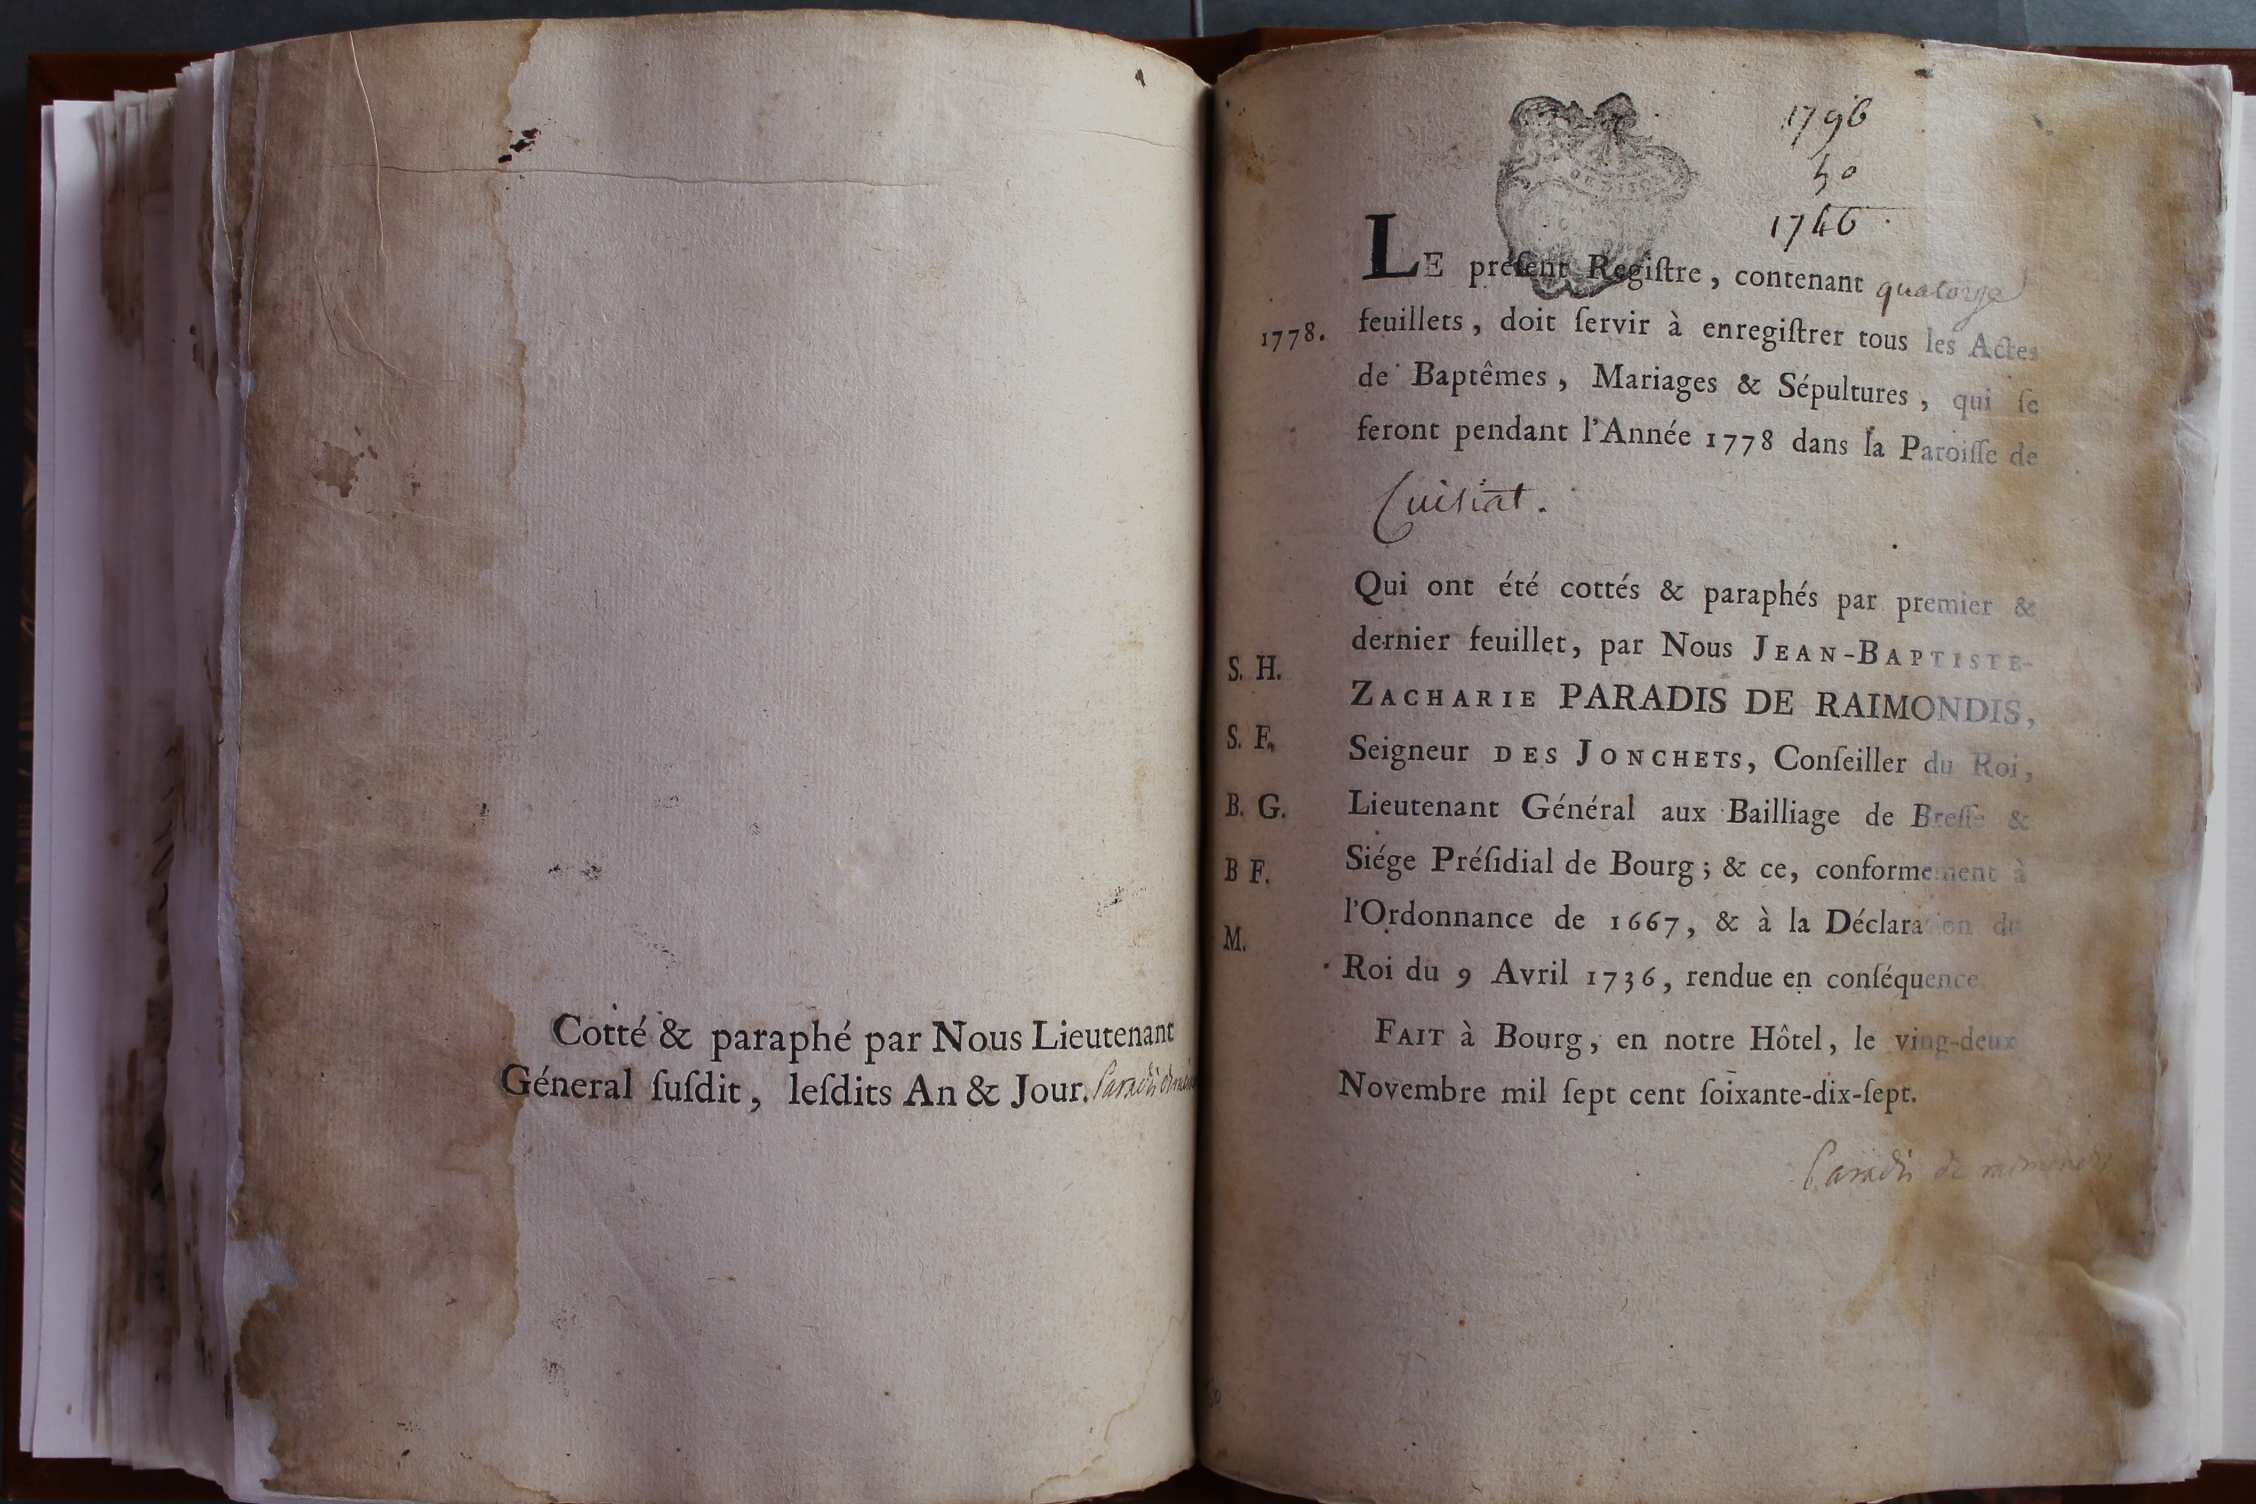 Cotté & paraphé par Nous Lieutenant
Géneral ſuſdit, leſdits An & Jour. Paradis
1796
50
1746
LE préſent Regiſtre, contenant quatorze
1778.
feuillets, doit ſervir à enregiſtrer tous les Actes
de Baptêmes, Mariages & Sépultures, qui ſe
feront pendant l'Année 1778 dans la Paroiſſe de
Cuisiat.
Qui ont été cottés & paraphés par premier &
dernier feuillet, par Nous JEAN-BAPTISTE-
S. H.
ZACHARIE PARADIS DE RAIMONDIS,
S. F.
Seigneur DES JONCHETS, Conſeiller du Roi,
B. G.
Lieutenant Général aux Bailliage de Breſſe &
B F.
Siége Préſidial de Bourg; & ce, conformement à
l'Ordonnance de 1667, & à la Déclaration du
M.
Roi du 9 Avril 1736, rendue en conſéquence
FAIT à Bourg, en notre Hôtel, le ving-deux
Novembre mil ſept cent ſoixante-dix-ſept.
Paradis de raimondis